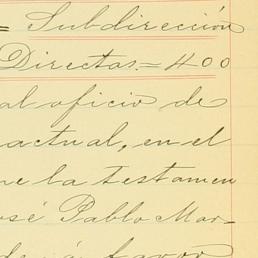 = Subdirección
Directos.= 400
al oficio de
actual, en el
ue la testamen
osé Pablo Mar-
de á favor